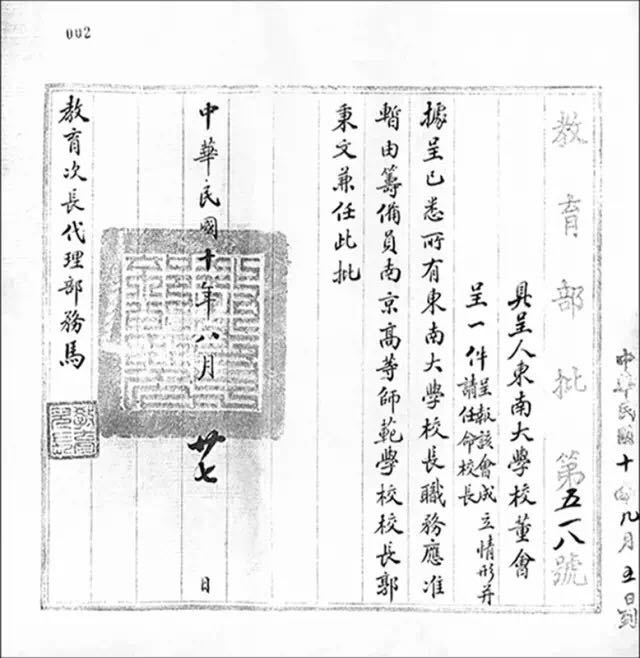 002
中華民國十年九月五日到
教育部批 第五一八號
具呈人東南大學校董會
呈一件 呈報該會成立情形并
請任命校長
據呈已悉所有東南大學校長職務應准
暫由籌備員南京高等師範學校校長郭
秉文兼任此批
中華民國十年八月廿七日
教育次長代理部務馬